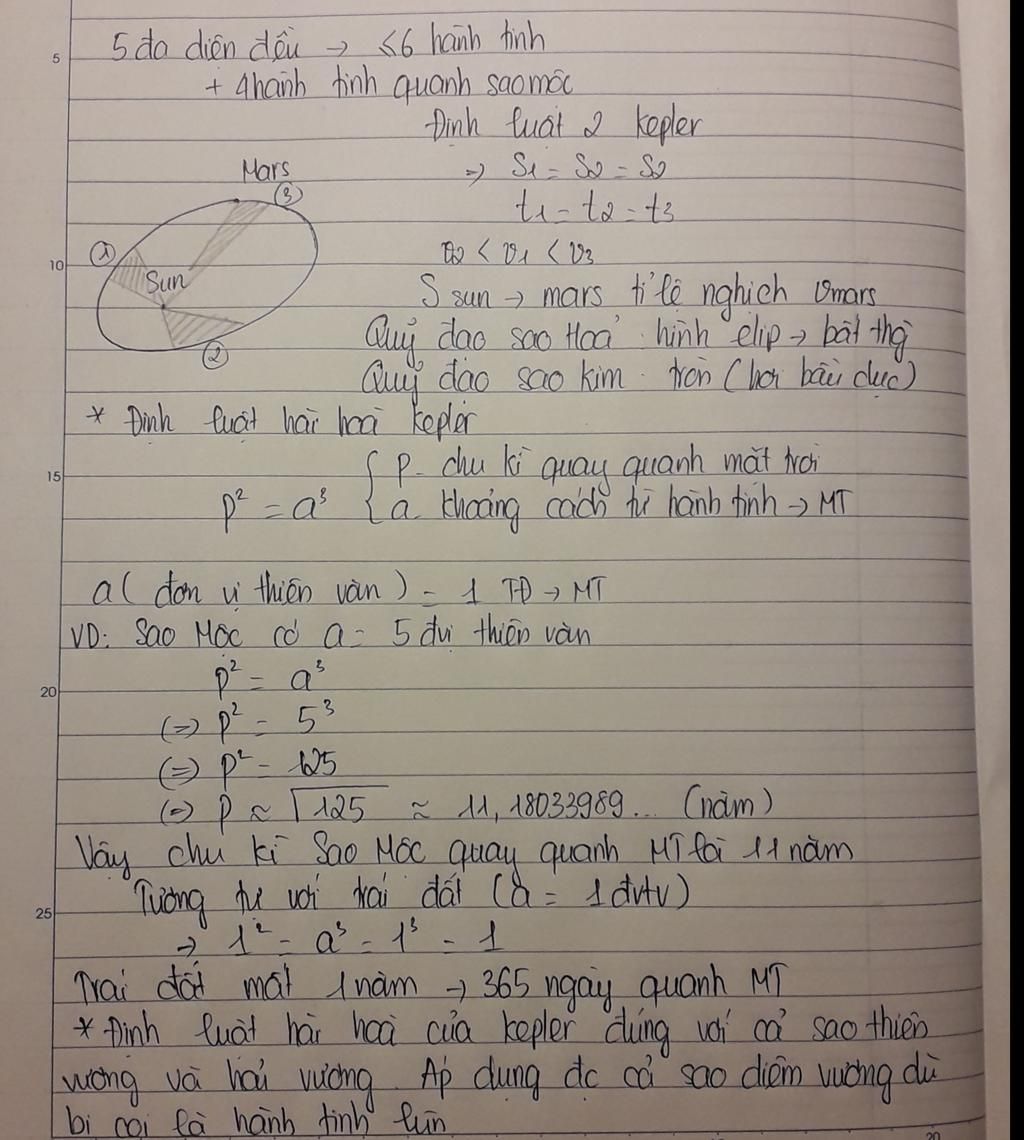 5
5 đa diện đều → ≤6 hành tinh
+ 4 hành tinh quanh sao mộc
Định luật 2 Kepler
Mars
⇒ S1 = S2 = S2
③
t1 = t2 = t3
①
v2 < v1 < v3
10
Sun
S sun → mars tỉ lệ nghịch vmars
Quỹ đạo sao Hoả: hình elip → bất thg
②
Quỹ đạo sao kim: tròn (hơi bầu dục)
* Định luật hài hoà kepler
15
p - chu kì quay quanh mặt trời
p² = a³ { a. khoảng cách từ hành tinh → MT
a (đơn vị thiên văn) = 1 TĐ → MT
VD: Sao Mộc có a = 5 đvị thiên văn
20
p² = a³
(=) p² = 5³
(=) p² = 125
(=) p ≈ √125 ≈ 11,18033989... (năm)
Vậy chu kì Sao Mộc quay quanh MT là 11 năm
Tương tự với trái đất (a = 1đvtv)
25
⇒ 1² = a³ = 1³ = 1
Trái đất mất 1 năm → 365 ngày quanh MT
* Định luật hài hoà của kepler đúng với cả sao thiên
vương và hải vương. Áp dụng đc cả sao diêm vương dù
bị coi là hành tinh lùn
20